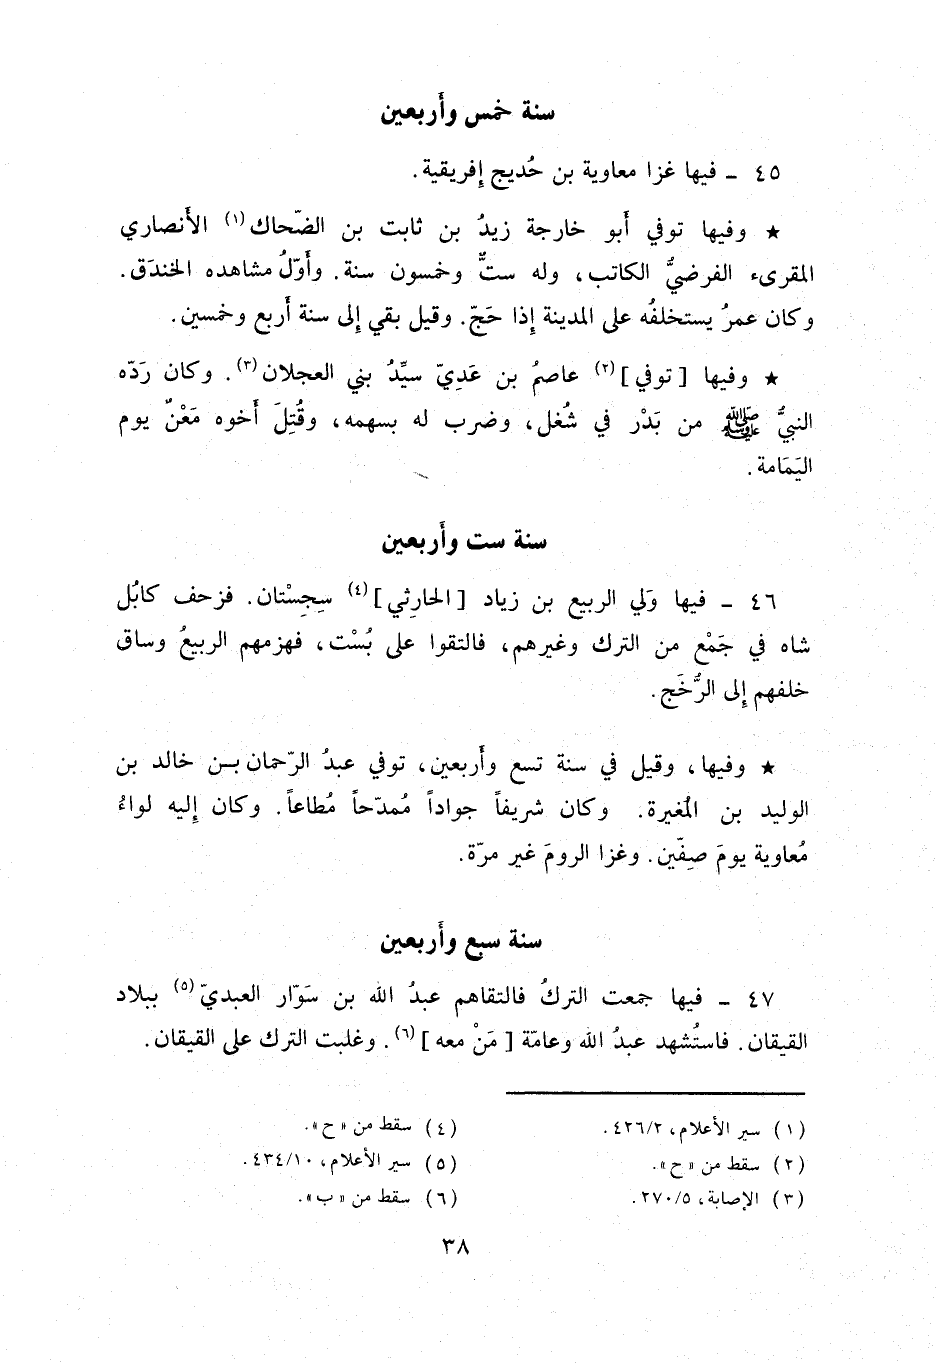 سنة خمس وأربعين
٤٥ ـ فيها غزا معاوية بن حُديج إفريقية.
★ وفيها توفي أبو خارجة زيدُ بن ثابت بن الضّحاك(١) الأنصاري
المقرىء الفرضيُّ الكاتب، وله ستٌّ وخمسون سنة. وأوّلُ مشاهده الخندَق.
وكان عمرُ يستخلفُه على المدينة إذا حَجّ. وقيل بقي إلى سنة أربع وخمسين.
★ وفيها [توفي](٢) عاصمُ بن عَدِيّ سيِّدُ بني العجلان(٣). وكان رَدّه
النبيُّ ﷺ من بَدْر في شُغل، وضرب له بسهمه، وقُتِلَ أخوه مَعْنٌ يوم
اليَمَامة.
سنة ست وأربعين
٤٦ ـ فيها وَلي الربيع بن زياد [الحارِثي](٤) سِجِسْتان. فزحف كابُل
شاه في جَمْع من الترك وغيرهم، فالتقوا على بُسْت، فهزمهم الربيعُ وساق
خلفهم إلى الرُّخَج.
★ وفيها، وقيل في سنة تسع وأربعين، توفي عبدُ الرّحمان بـن خالد بن
الوليد بن المُغيرة. وكان شريفاً جواداً مُمدّحاً مُطاعاً. وكان إليه لواءُ
مُعاوية يومَ صِفّين. وغزا الرومَ غير مرّة.
سنة سبع وأربعين
٤٧ ـ فيها جمعت التركُ فالتقاهم عبدُ الله بن سَوّار العبديّ(٥) ببلاد
القيقان. فاستُشهد عبدُ الله وعامّة [مَنْ معه](٦). وغلبت الترك على القيقان.
(١) سير الأعلام، ٤٢٦/٢.
(٢) سقط من «ح».
(٣) الإصابة، ٢٧٠/٥.
(٤) سقط من «ح».
(٥) سير الأعلام، ٤٣٤/١٠.
(٦) سقط من «ب».
٣٨